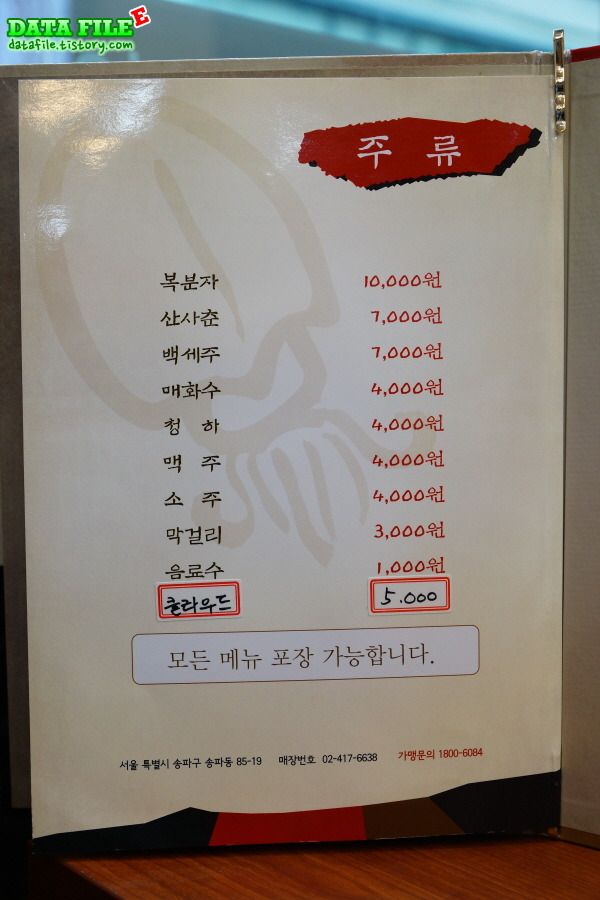 DATA FILE E
datafile.tistory.com
주 류
복분자 10,000원
산사춘 7,000원
백세주 7,000원
매화수 4,000원
청 하 4,000원
맥 주 4,000원
소 주 4,000원
막걸리 3,000원
음료수 1,000원
클라우드 5.000
모든 메뉴 포장 가능합니다.
서울 특별시 송파구 송파동 85-19 매장번호 02-417-6638 가맹문의 1800-6084